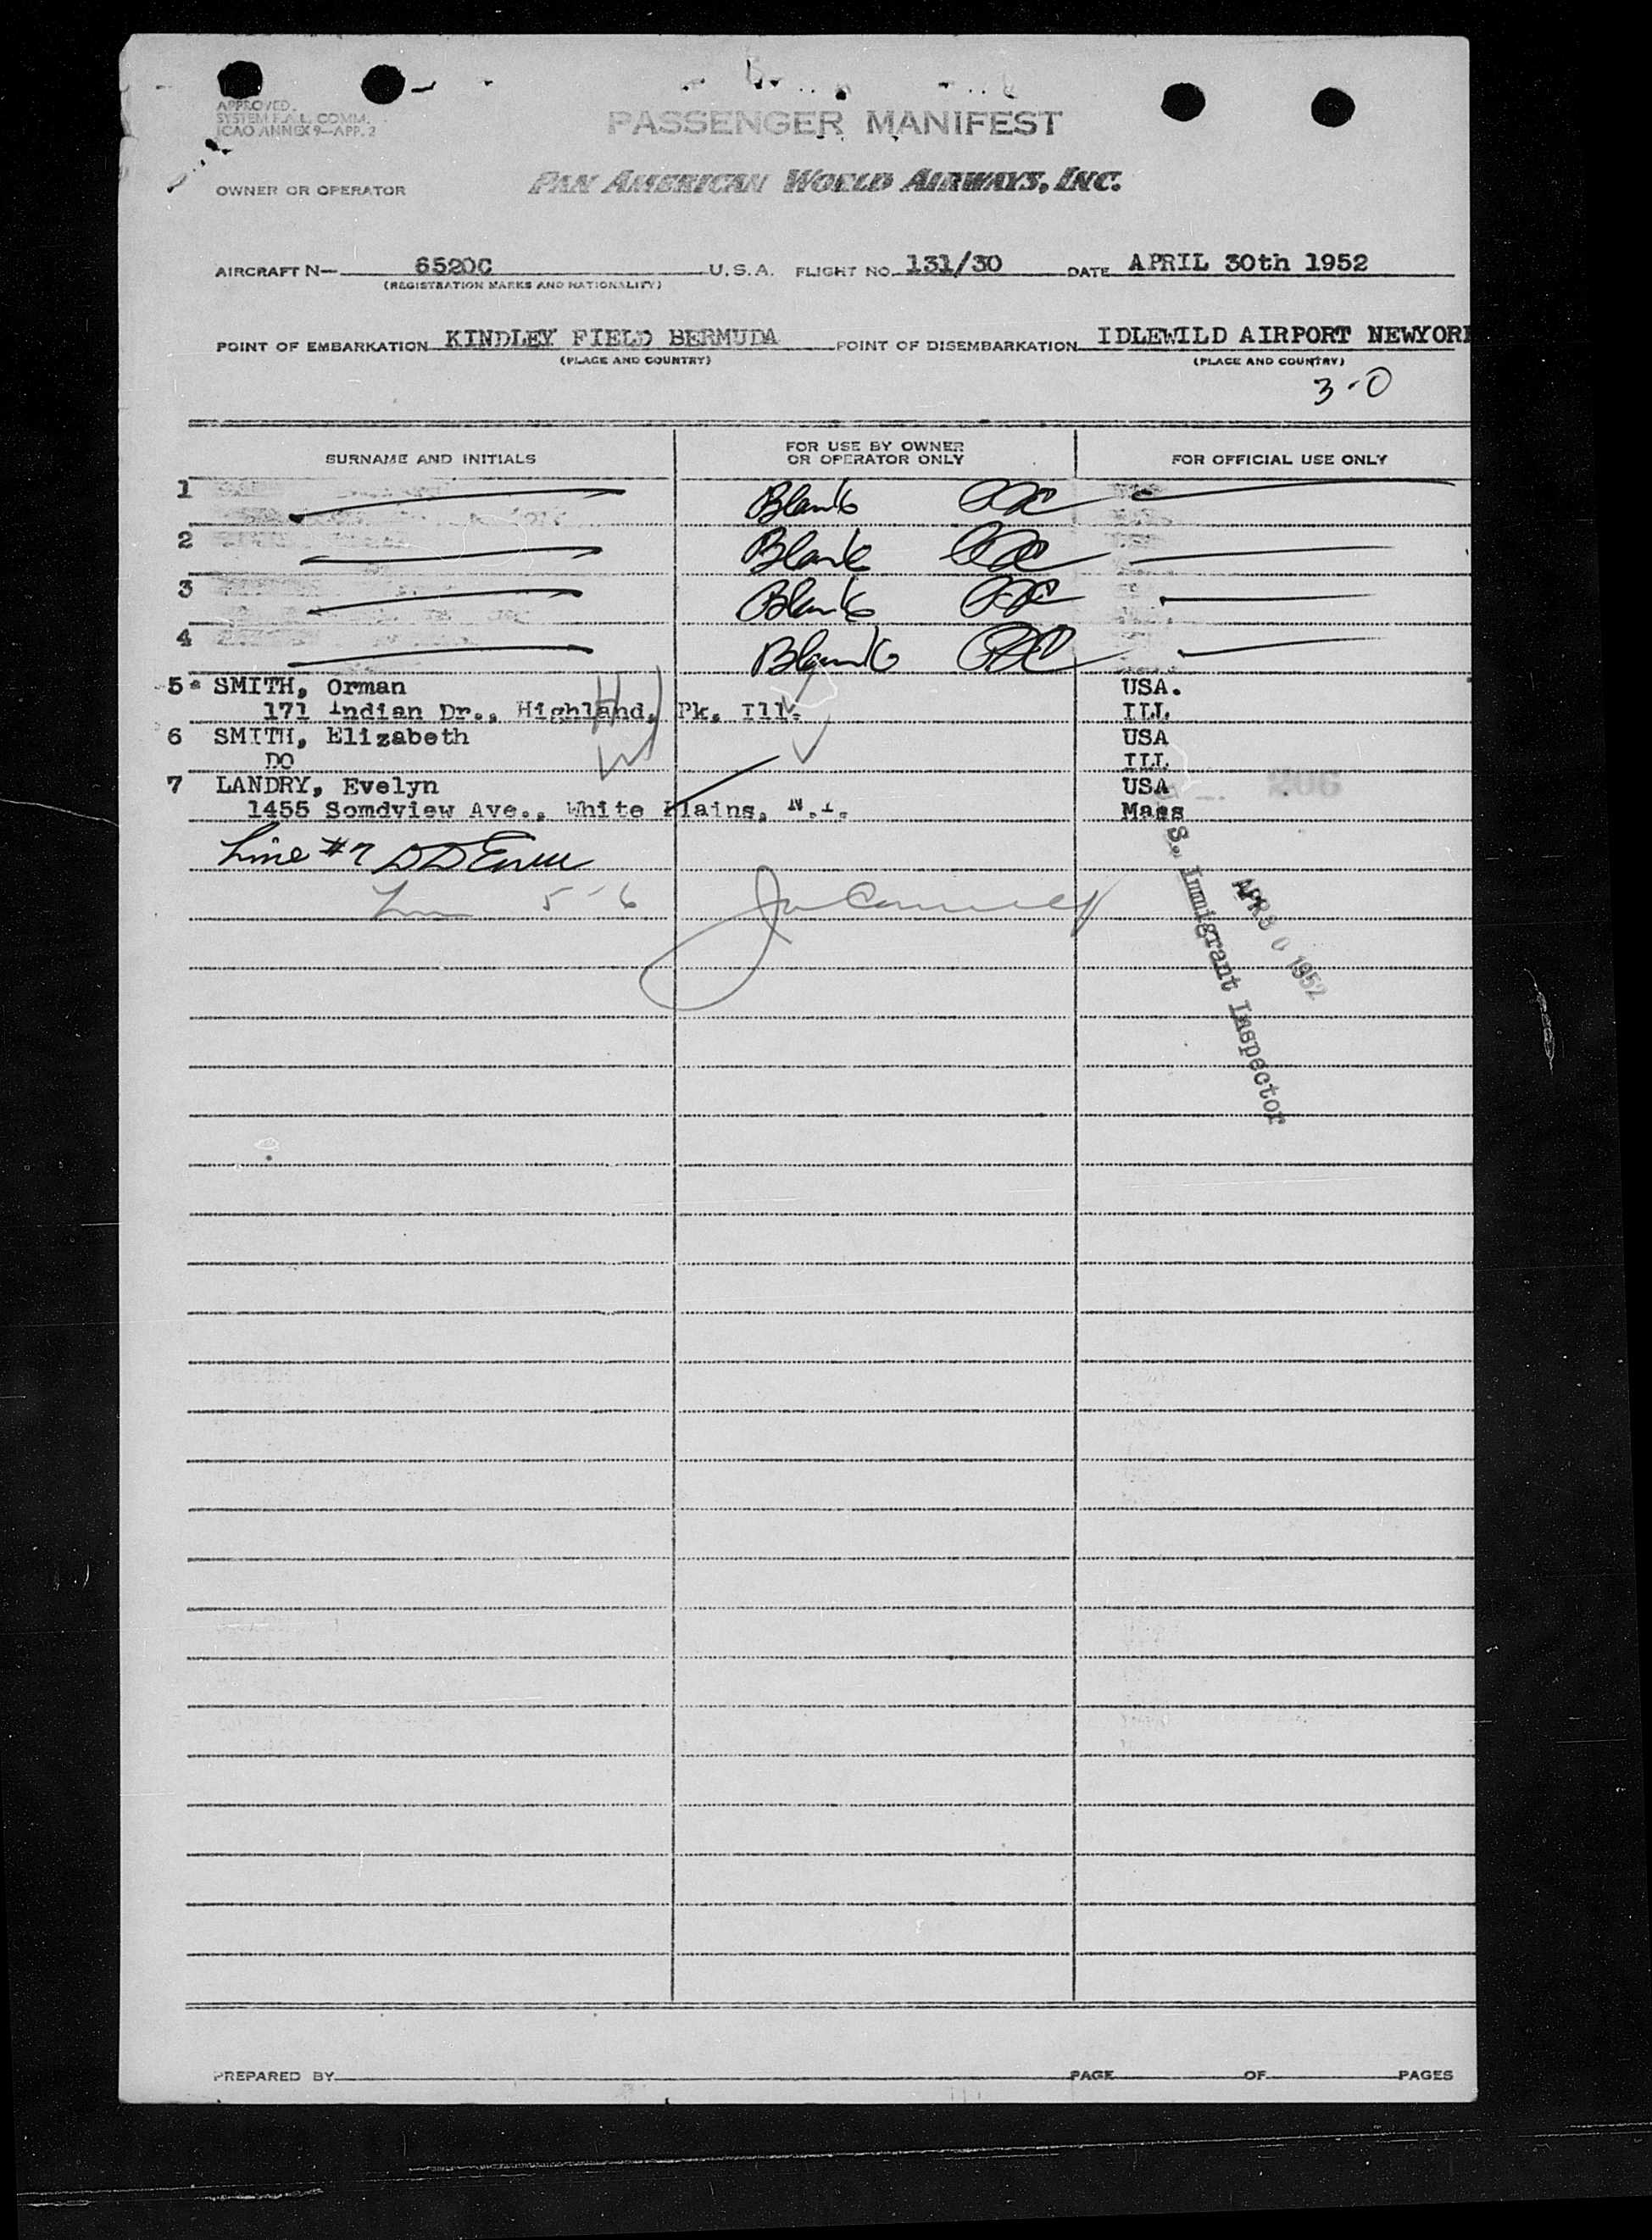 APPROVED.
SYSTEM F.A.L. COMM.
ICAO ANNEX 9—APP. 2
PASSENGER MANIFEST
OWNER OR OPERATOR PAN AMERICAN WORLD AIRWAYS, INC.
AIRCRAFT N— 6520C U.S.A. FLIGHT NO. 131/30 DATE APRIL 30th 1952
(REGISTRATION MARKS AND NATIONALITY)
POINT OF EMBARKATION KINDLEY FIELD BERMUDA POINT OF DISEMBARKATION IDLEWILD AIRPORT NEWYORK
(PLACE AND COUNTRY) (PLACE AND COUNTRY)
3-0
SURNAME AND INITIALS FOR USE BY OWNER OR OPERATOR ONLY FOR OFFICIAL USE ONLY
1 Blank
2 Blank
3 Blank
4 Blank
5 SMITH, Orman USA.
171 Indian Dr., Highland, Pk. Ill. ILL
6 SMITH, Elizabeth USA
DO ILL
7 LANDRY, Evelyn USA 206
1455 Somdview Ave., White Plains, N.Y. Mass
Line #7
5-6
S. Immigrant Inspector
APR 30 1952
PREPARED BY PAGE OF PAGES